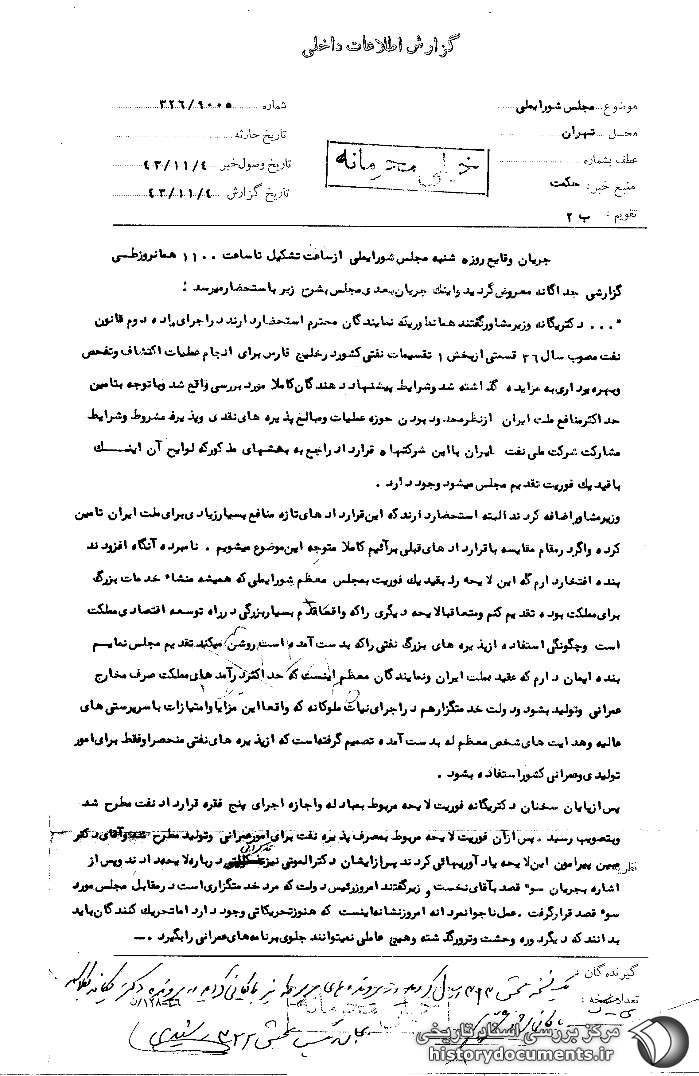 گزارش اطلاعات داخلی
موضوع مجلس شورایملی
شماره ۳۲۶/۹۰۰۵
محل تهران
تاریخ حادثه
عطف بشماره
تاریخ وصول خبر ۴۳/۱۱/۴
منبع خبر: حکمت
تاریخ گزارش ۴۳/۱۱/۴
تقویم: ب ۲
خیلی محرمانه
جریان وقایع روز ۵ شنبه مجلس شورایملی ازساعت تشکیل تاساعت ۱۱۰۰ همانروزطی
گزارشی جداگانه معروض گردید واینك جریان بعدی مجلس بشرح زیر باستحضارمیرسد :
"... دکتریگانه وزیرمشاورگفتند همانطوریکه نمایندگان محترم استحضاردارند دراجرای ماده دوم قانون
نفت مصوب سال ۳۶ قسمتی ازبخش ۱ تقسیمات نفتی کشوردرخلیج فارس برای انجام عملیات اکتشاف وتفحص
وبهره برداری به مزایده گذاشته شد وشرایط پیشنهاد دهندگان کاملا مورد بررسی واقع شد وباتوجه بتامین
حداکثرمنافع ملت ایران ازنظرمحدود بودن حوزه عملیات ومبالغ پذیره های نقدی وپذیره مشروط وشرایط
مشارکت شرکت ملی نفت ایران بااین شرکتها ۵ قرارداد راجع به بخشهای مذکورکه لوایح آن اینـــك
باقید یك فوریت تقدیم مجلس میشود وجود دارد .
وزیرمشاوراضافه کردند البته استحضاردارند که این قراردادهای تازه منافع بسیارزیادی برای ملت ایران تامین
کرده واگردرمقام مقایسه باقراردادهای قبلی برآئیم کاملا متوجه این موضوع میشویم . نامبرده آنگاه افزودند
بنده افتخاردارم که این لایحه را بقید یك فوریت بمجلس معظم شورایملی که همیشه منشاء خدمات بزرگ
برای مملکت بوده تقدیم کنم ومتعاقبا لایحه دیگری راکه واقعا قدم بسیاربزرگی درراه توسعه اقتصادی مملکت
است وچگونگی استفاده ازپذیره های بزرگ نفتی راکه بدست آمده است روشن میکند تقدیم مجلس نمایم
بنده ایمان دارم که عقیده ملت ایران ونمایندگان معظم اینست که حداکثردرآمدهای مملکت صرف مخارج
عمرانی وتولید بشود ودولت خدمتگزارهم دراجرای نیات ملوکانه که واقعا این مزایا وامتیازات باسرپرستی های
عالیه وهدایت های شخص معظم له بدست آمده تصمیم گرفته است که ازپذیره های نفتی منحصرا وفقط برای امور
تولیدی وعمرانی کشوراستفاده بشود .
پس ازپایان سخنان دکتریگانه فوریت لایحه مربوط بمبادله واجازه اجرای پنج فقره قرارداد نفت مطرح شد
وبتصویب رسید . پس ازآن فوریت لایحه مربوط بمصرف پذیره نفت برای امورعمرانی وتولید مطرح شد وآقای دکتر
مبین پیرامون این لایحه یادآوریهائی کردند پس ازایشان دکترالموتی نیز درباره لایحه دادند وپس از
اشاره بجریان سوء قصد بآقای نخست وزیرگفتند امروزرئیس دولت که مرد خدمتگزاری است درمقابل مجلس مورد
سوء قصد قرارگرفت . عمل ناجوانمردانه امروزنشانه اینست که هنوزتحریکاتی وجود دارد اما تحریك کنندگان باید
بدانند که دیگردوره وحشت وترورگذشته وهیچ عاملی نمیتوانند جلوی برنامه های عمرانی رابگیرد .ــ
نظر
گیرندگان
تعداد نسخه
مرکز بررسی اسناد تاریخی
historydocuments.ir